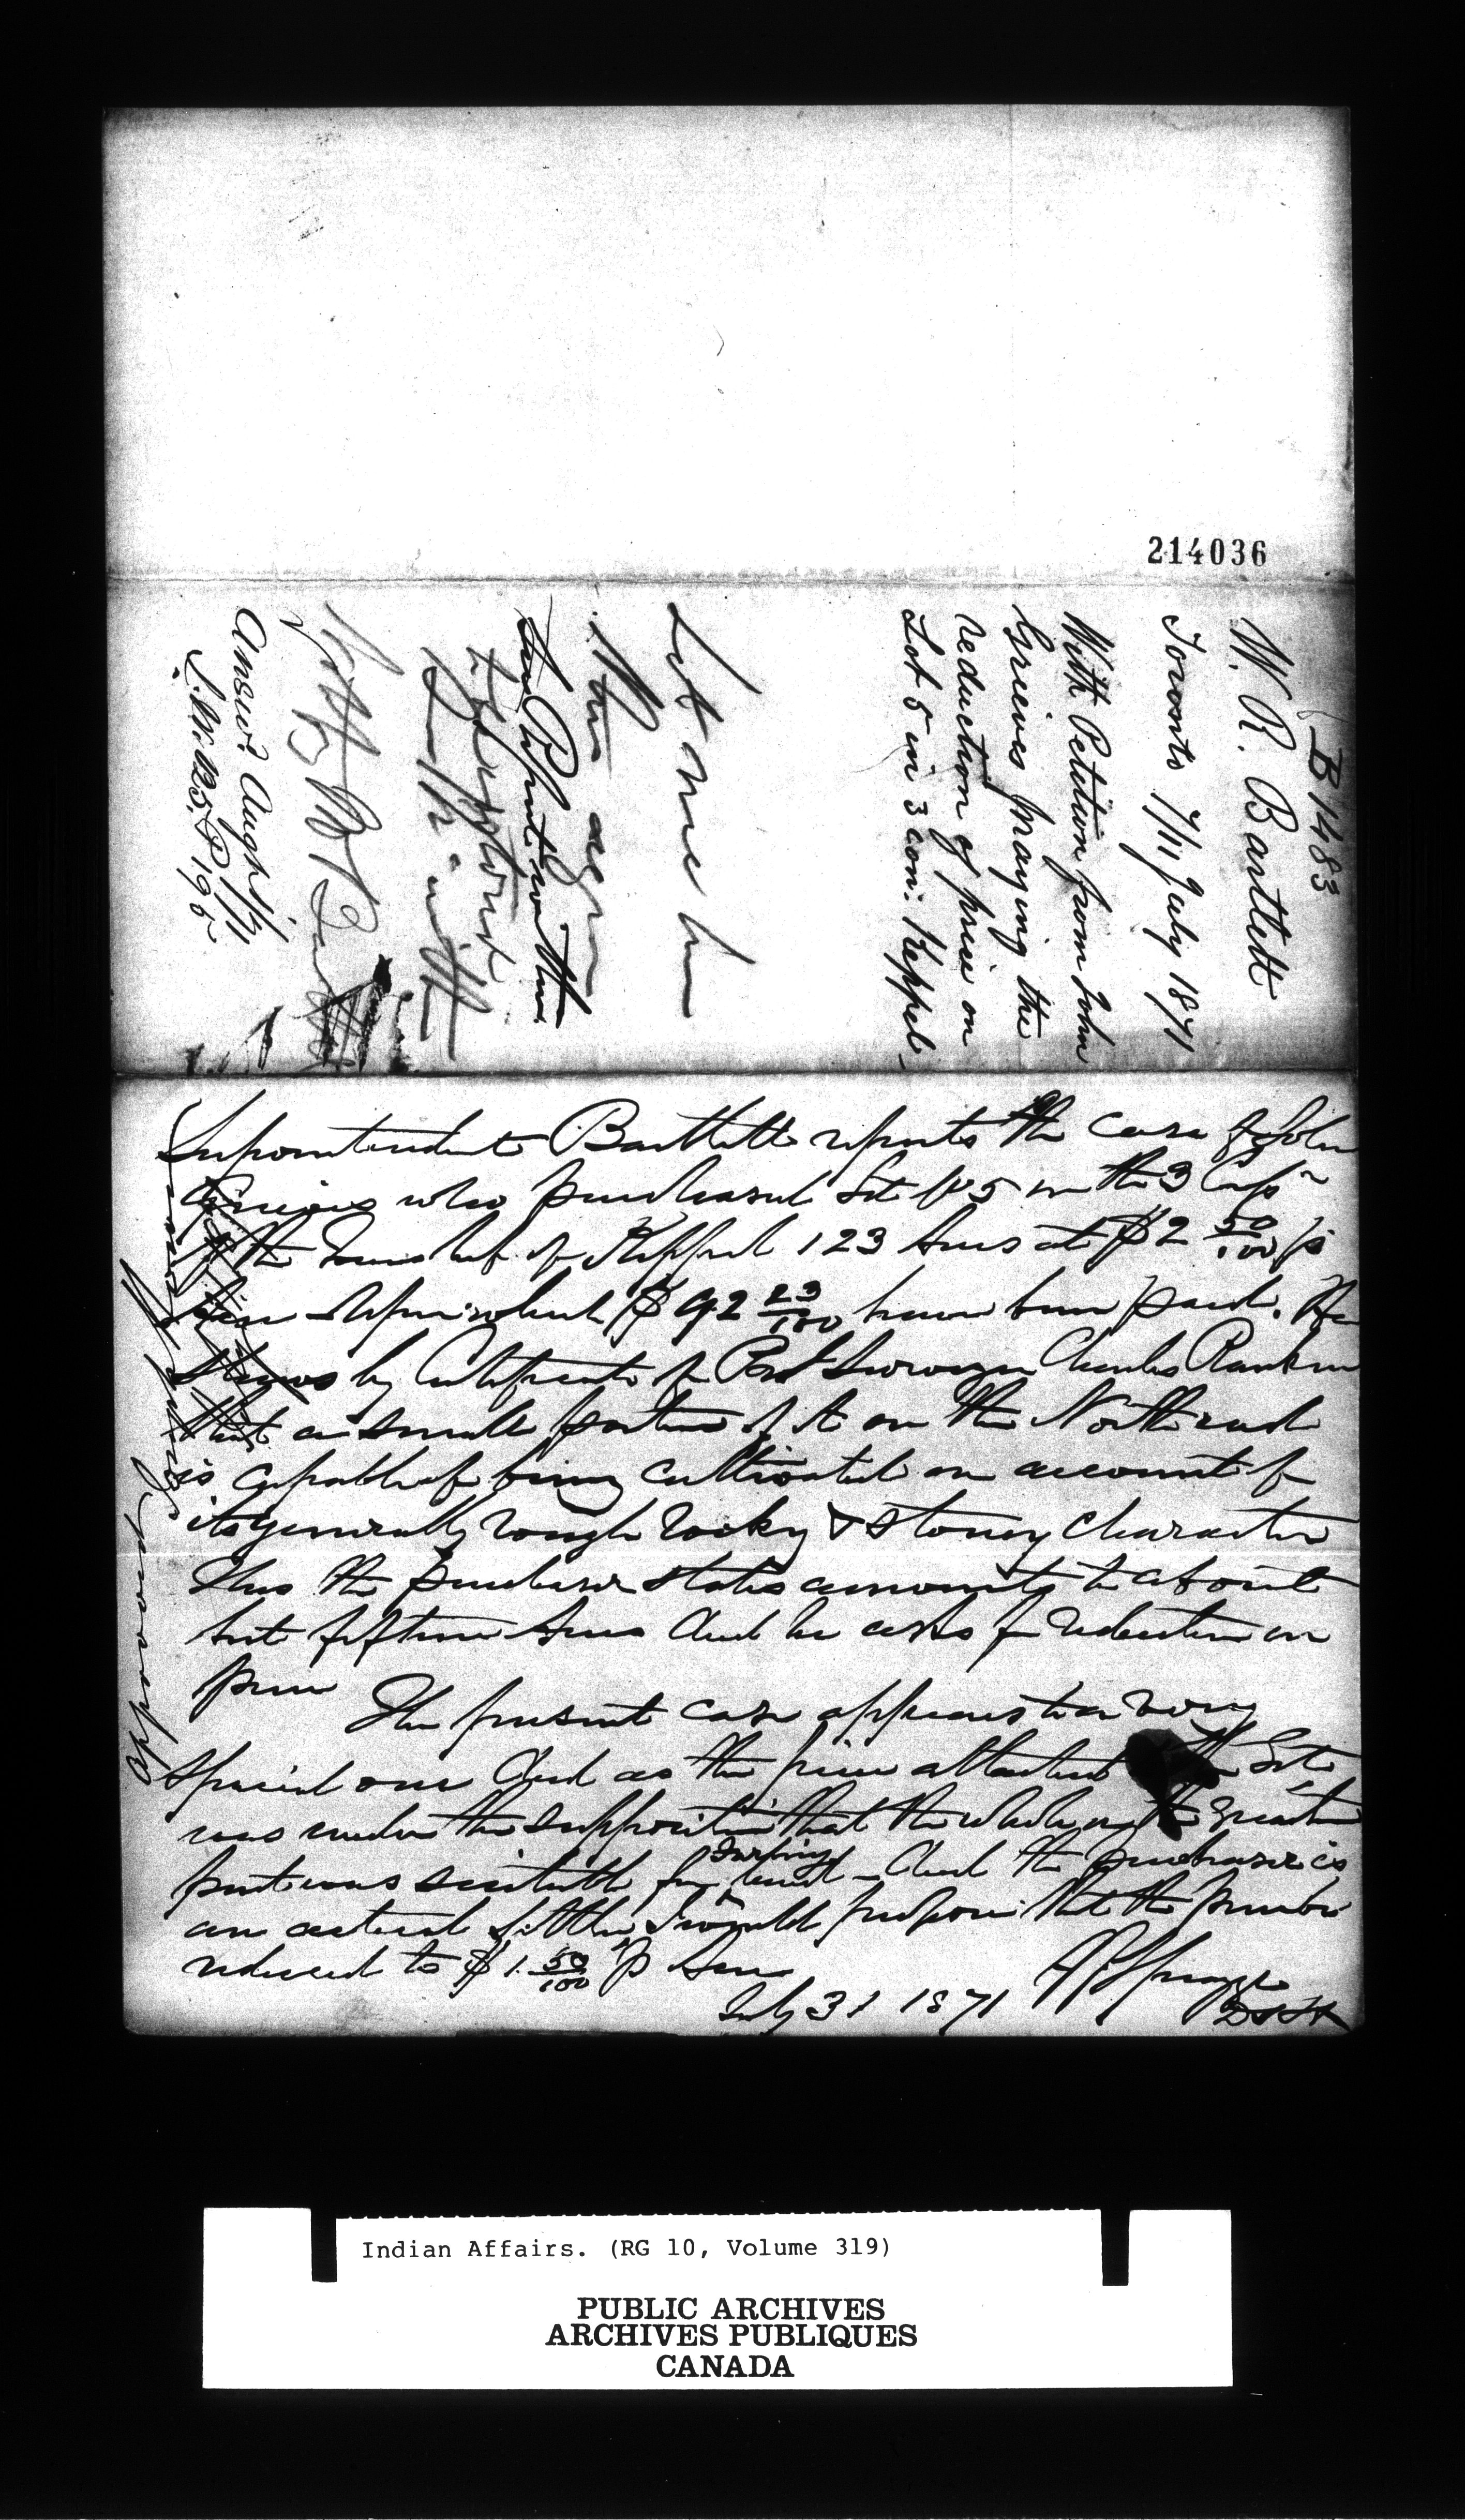 214036
B 1483
W. R. Bartlett
Toronto 7/11 July 1871
With Petition from John
Grieves praying the
reduction of price on
Lot 5 in 3 con: Keppel
Let me have
again
Answd. Aug
Approved
Superintendent Bartlett reports the case of John
Grieves who purchased Lot No 5 in the 3 Conn
the Township of Keppel 123 Acres at $2 50/100 p
Acre - Upon which $92 23/100 have been paid. He
shews by Certificate of Surveyor Charles Rankin
that a small portion of it on the North end
is capable of being cultivated on account of
its generally rough rocky & stoney character
This the purchaser states amounts to about
but fifteen Acres And he asks for reduction in
price
The present case appears to be a very
special one And as the price attached Lot
was under the supposition that the whole or the greater
part was suitable for farming land - And the purchaser is
an actual settler I would propose that the price be
reduced to $1. 50/100 p Acre
July 31 1871
Indian Affairs. (RG 10, Volume 319)
PUBLIC ARCHIVES
ARCHIVES PUBLIQUES
CANADA